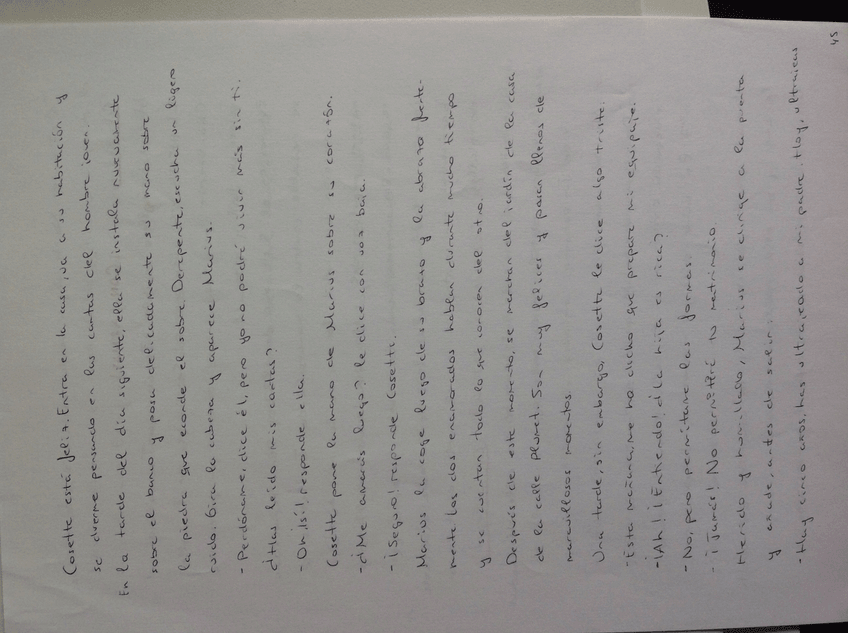 Cosette está feliz. Entra en la casa, va a su habitación y
se duerme pensando en las cartas del hombre joven.
En la tarde del día siguiente, ella se instala nuevamente
sobre el banco y posa delicadamente su mano sobre
la piedra que econde el sobre. Derepente, escucha un ligero
ruido. Gira la cabeza y aparece Marius.
- Perdóname, dice él, pero yo no podré vivir más sin ti.
¿Has leido mis cartas?
- Oh, ¡sí! responde ella.
Cosette pone la mano de Marius sobre su corazón.
- ¿Me amarás luego? le dice con voz baja.
- ¡Seguro! responde Cosette.
Marius la coge luego de su brazo y la abraza fuerte-
mente. Los dos enamorados hablan durante mucho tiempo
y se cuentan todo lo que conocen del otro.
Después de este momento, se marchan del jardín de la casa
de la calle Plumet. Son muy felices y pasan llenos de
maravillosos momentos.
Una tarde, sin embargo, Cosette le dice algo triste.
- Esta mañana, me ha dicho que prepare mi equipaje.
- ¡Ah! ¡Entiendo! ¿La hija es rica?
- No, pero permítame las formas.
- ¡Jamás! No permitiré tu matrimonio.
Herido y humillado, Marius se dirige a la puerta
y añade, antes de salir:
- Hay cinco años, has ultrajeado a mi padre. Hoy, ultrajeas
45